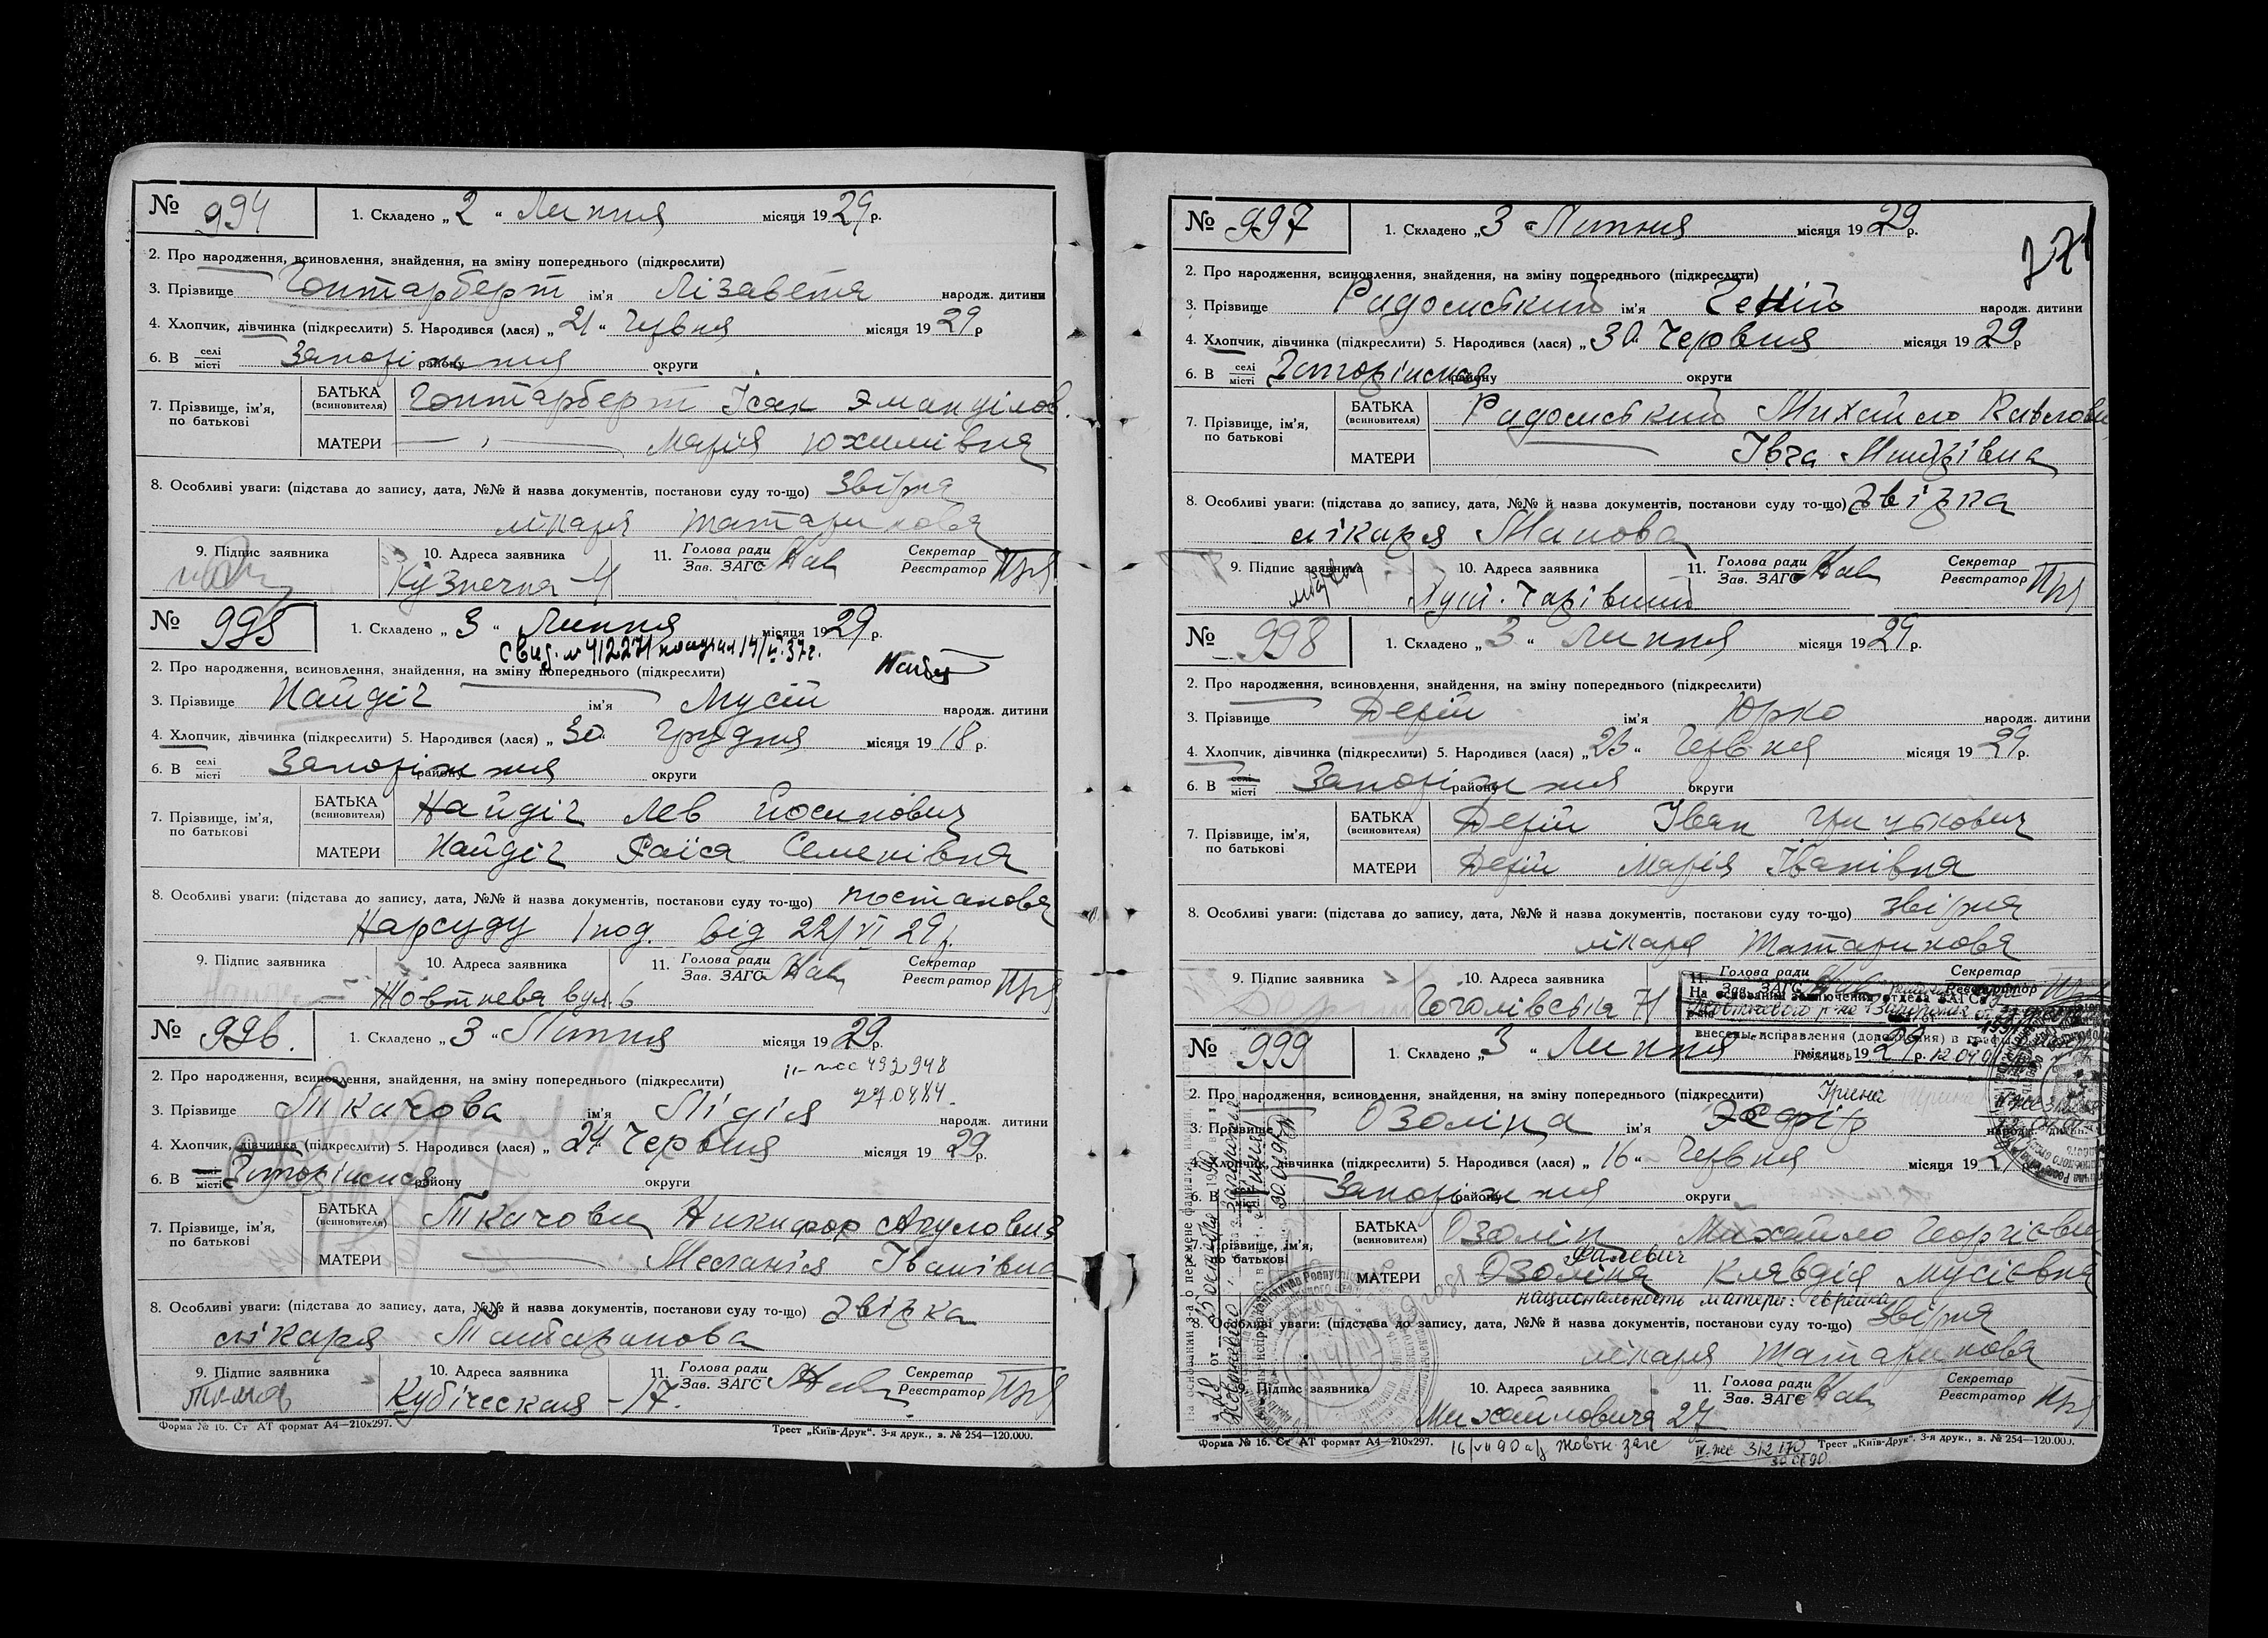 № 994 1. Складено „2“ Липня місяця 1929 р.
2. Про народження, всиновлення, знайдення, на зміну попереднього (підкреслити)
3. Прізвище Гонтарберт ім'я Лізавета народж. дитини
4. Хлопчик, дівчинка (підкреслити) 5. Народився (лася) „21“ Червня місяця 1929 р
6. В селі місті Запоріжжя району округи
7. Прізвище, ім'я, по батькові БАТЬКА (всиновителя) Гонтарберт Ісак Эмануілов.
МАТЕРИ — „ — Марія Юхимівна
8. Особливі уваги: (підстава до запису, дата, №№ й назва документів, постанови суду то-що) Звірка
лікаря Татаринова
9. Підпис заявника 10. Адреса заявника 11. Голова ради Зав. ЗАГС Секретар Реєстратор
Кузнечна - 4
№ 995 1. Складено „3“ Липня місяця 1929 р.
Свид. № 412271 19/VI 37 г.
2. Про народження, всиновлення, знайдення, на зміну попереднього (підкреслити)
3. Прізвище Найдіч ім'я Мусій народж. дитини
4. Хлопчик, дівчинка (підкреслити) 5. Народився (лася) „30 Грудня місяця 1918 р.
6. В селі місті Запоріжжя району округи
7. Прізвище, ім'я, по батькові БАТЬКА (всиновителя) Найдіч Лев Йосипович
МАТЕРИ Найдіч Раїса Семенівна
8. Особливі уваги: (підстава до запису, дата, №№ й назва документів, постанови суду то-що) постанова
Нарсуду 1 под. від 22/VI 29 р.
9. Підпис заявника 10. Адреса заявника 11. Голова ради Зав. ЗАГС Секретар Реєстратор
Жовтнева вул. 6
№ 996. 1. Складено „3“ Липня місяця 1929 р.
492948
2. Про народження, всиновлення, знайдення, на зміну попереднього (підкреслити)
27.04.84.
3. Прізвище Ткачова ім'я Лідія народж. дитини
4. Хлопчик, дівчинка (підкреслити) 5. Народився (лася) „24 Червня місяця 1929 р.
6. В селі місті Запоріжжя району округи
7. Прізвище, ім'я, по батькові БАТЬКА (всиновителя) Ткачов Никифор
МАТЕРИ — Меланія Іванівна
8. Особливі уваги: (підстава до запису, дата, №№ й назва документів, постанови суду то-що) звірка
лікаря Татаринова
9. Підпис заявника 10. Адреса заявника 11. Голова ради Зав. ЗАГС Секретар Реєстратор
Кубіческая - 17.
Форма № 16. Ст АТ формат А4—210х297. Трест „Київ-Друк“. 3-я друк., з. № 254—120.000.
№ 997 1. Складено „3“ Липня місяця 1929 р.
2. Про народження, всиновлення, знайдення, на зміну попереднього (підкреслити)
3. Прізвище Радомський ім'я Геній народж. дитини
4. Хлопчик, дівчинка (підкреслити) 5. Народився (лася) „30 Червня місяця 1929 р
6. В селі місті Запоріжжя району округи
7. Прізвище, ім'я, по батькові БАТЬКА (всиновителя) Радомський Михайло Павлови
МАТЕРИ — Івга
8. Особливі уваги: (підстава до запису, дата, №№ й назва документів, постанови суду то-що) звірка
лікаря
9. Підпис заявника 10. Адреса заявника 11. Голова ради Зав. ЗАГС Секретар Реєстратор
№ 998 1. Складено „3“ Липня місяця 1929 р.
2. Про народження, всиновлення, знайдення, на зміну попереднього (підкреслити)
3. Прізвище Дерій ім'я Юрко народж. дитини
4. Хлопчик, дівчинка (підкреслити) 5. Народився (лася) „23“ Червня місяця 1929 р.
6. В селі місті Запоріжжя району округи
7. Прізвище, ім'я, по батькові БАТЬКА (всиновителя) Дерій Іван Грицькович
МАТЕРИ Дерій Марія Іванівна
8. Особливі уваги: (підстава до запису, дата, №№ й назва документів, постанови суду то-що) звірка
лікаря Татаринова
9. Підпис заявника 10. Адреса заявника 11. Голова ради Зав. ЗАГС Секретар Реєстратор
Гоголівська 71
На основании заключения отдела ЗАГС
внесены исправления (дополнения) в графы
№ 999 1. Складено „3“ Липня місяця 1929 р.
2. Про народження, всиновлення, знайдення, на зміну попереднього (підкреслити) Ірина
3. Прізвище Озоліна ім'я Эсфір народж. дитини
4. Хлопчик, дівчинка (підкреслити) 5. Народився (лася) „16“ Червня місяця 19
6. В Запоріжжя району округи
7. Прізвище, ім'я, по батькові БАТЬКА (всиновителя) Озолін Михайло Георгієви
Фалевич
МАТЕРИ Озоліна Клавдія Мусієвна
национальность матери: еврейка
8. Особливі уваги: (підстава до запису, дата, №№ й назва документів, постанови суду то-що) Звірка
лікаря Татаринова
9. Підпис заявника 10. Адреса заявника 11. Голова ради Зав. ЗАГС Секретар Реєстратор
Михайловича 27
Форма № 16. Ст АТ формат А4—210х297. Трест „Київ-Друк“. 3-я друк., з. № 254—120.000.
16/VII 90 Жовтн. загс 312170